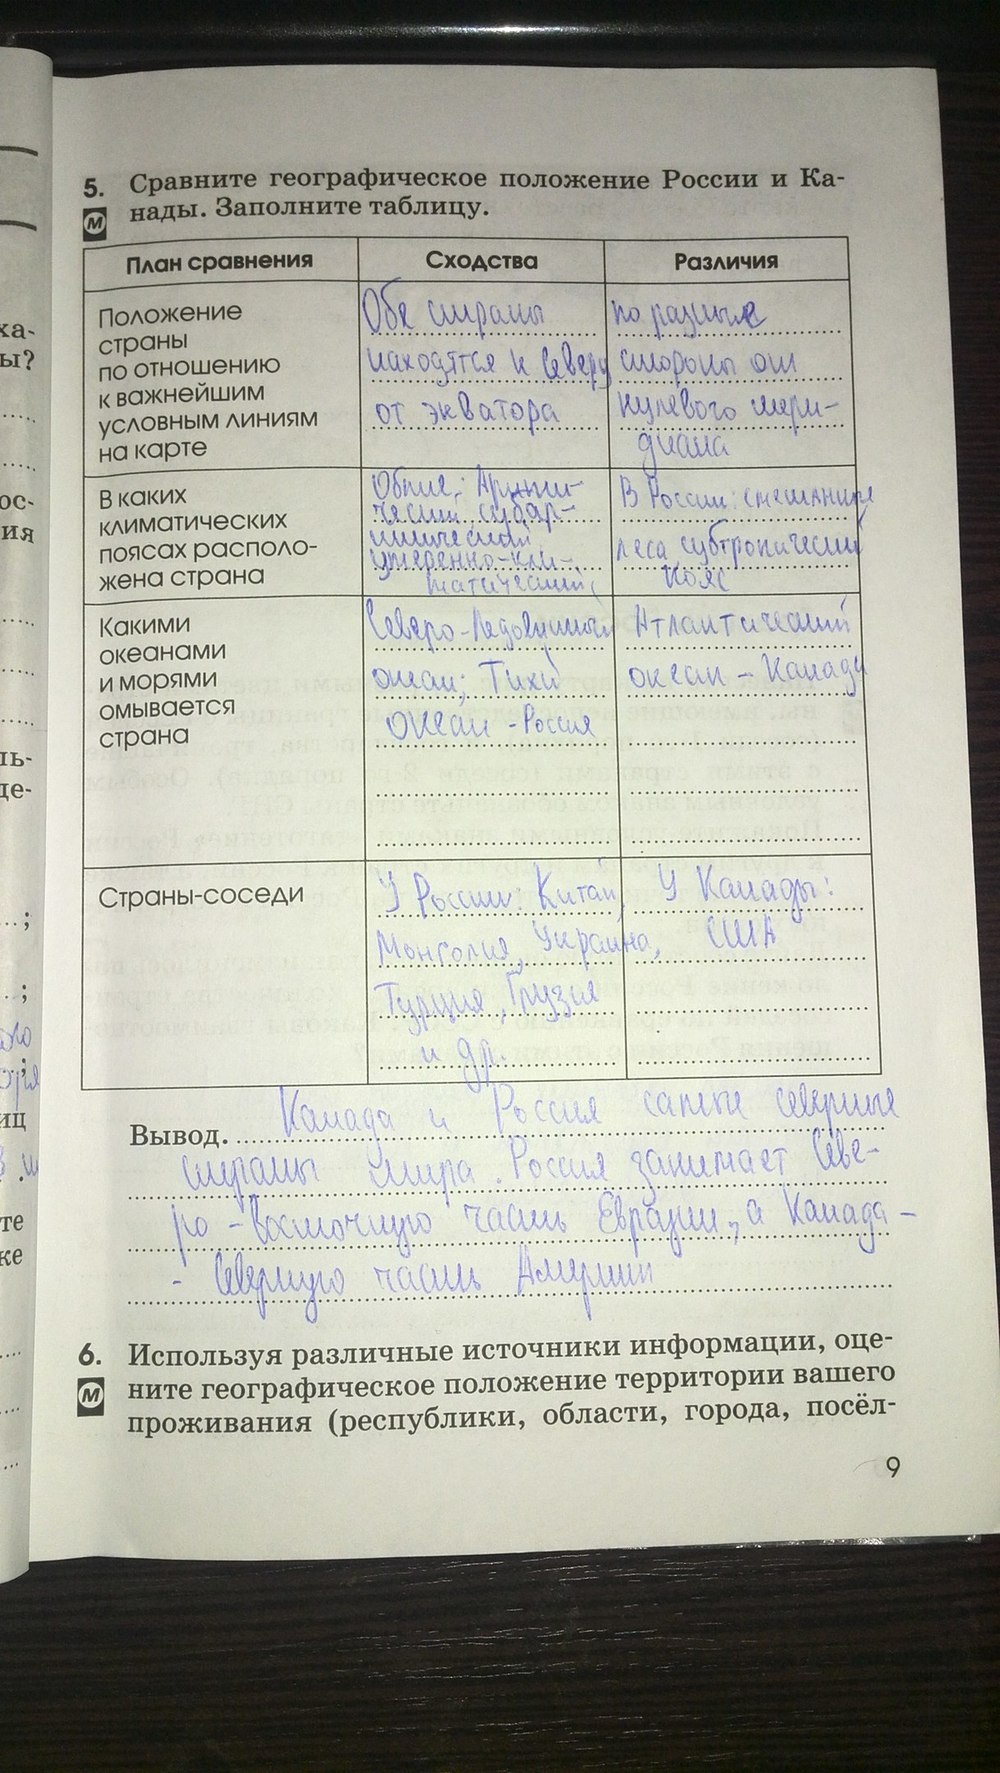 5. Сравните географическое положение России и Ка-
М нады. Заполните таблицу.
План сравнения
Сходства
Различия
Положение
страны
по отношению
к важнейшим
условным линиям
на карте
Обе страны
находятся к северу
от экватора
по разные
стороны от
нулевого мери-
диана
В каких
климатических
поясах располо-
жена страна
Общие: Аркти-
ческий, субар-
ктический
умеренно-кли-
матический
В России: смешанные
леса субтропический
пояс
Какими
океанами
и морями
омывается
страна
Северо-Ледовитый
океан; Тихий
океан - Россия
Атлантический
океан - Канада
Страны-соседи
У России: Китай,
Монголия, Украина,
Турция, Грузия
и др.
У Канады:
США
Вывод. Канада и Россия самые северные
страны мира. Россия занимает севе-
ро-восточную часть Евразии, а Канада -
- северную часть Америки
6. Используя различные источники информации, оце-
М ните географическое положение территории вашего
проживания (республики, области, города, посёл-
9
ха-
ы?
ос-
ия
ль-
де-
;
;
иц
те
ке